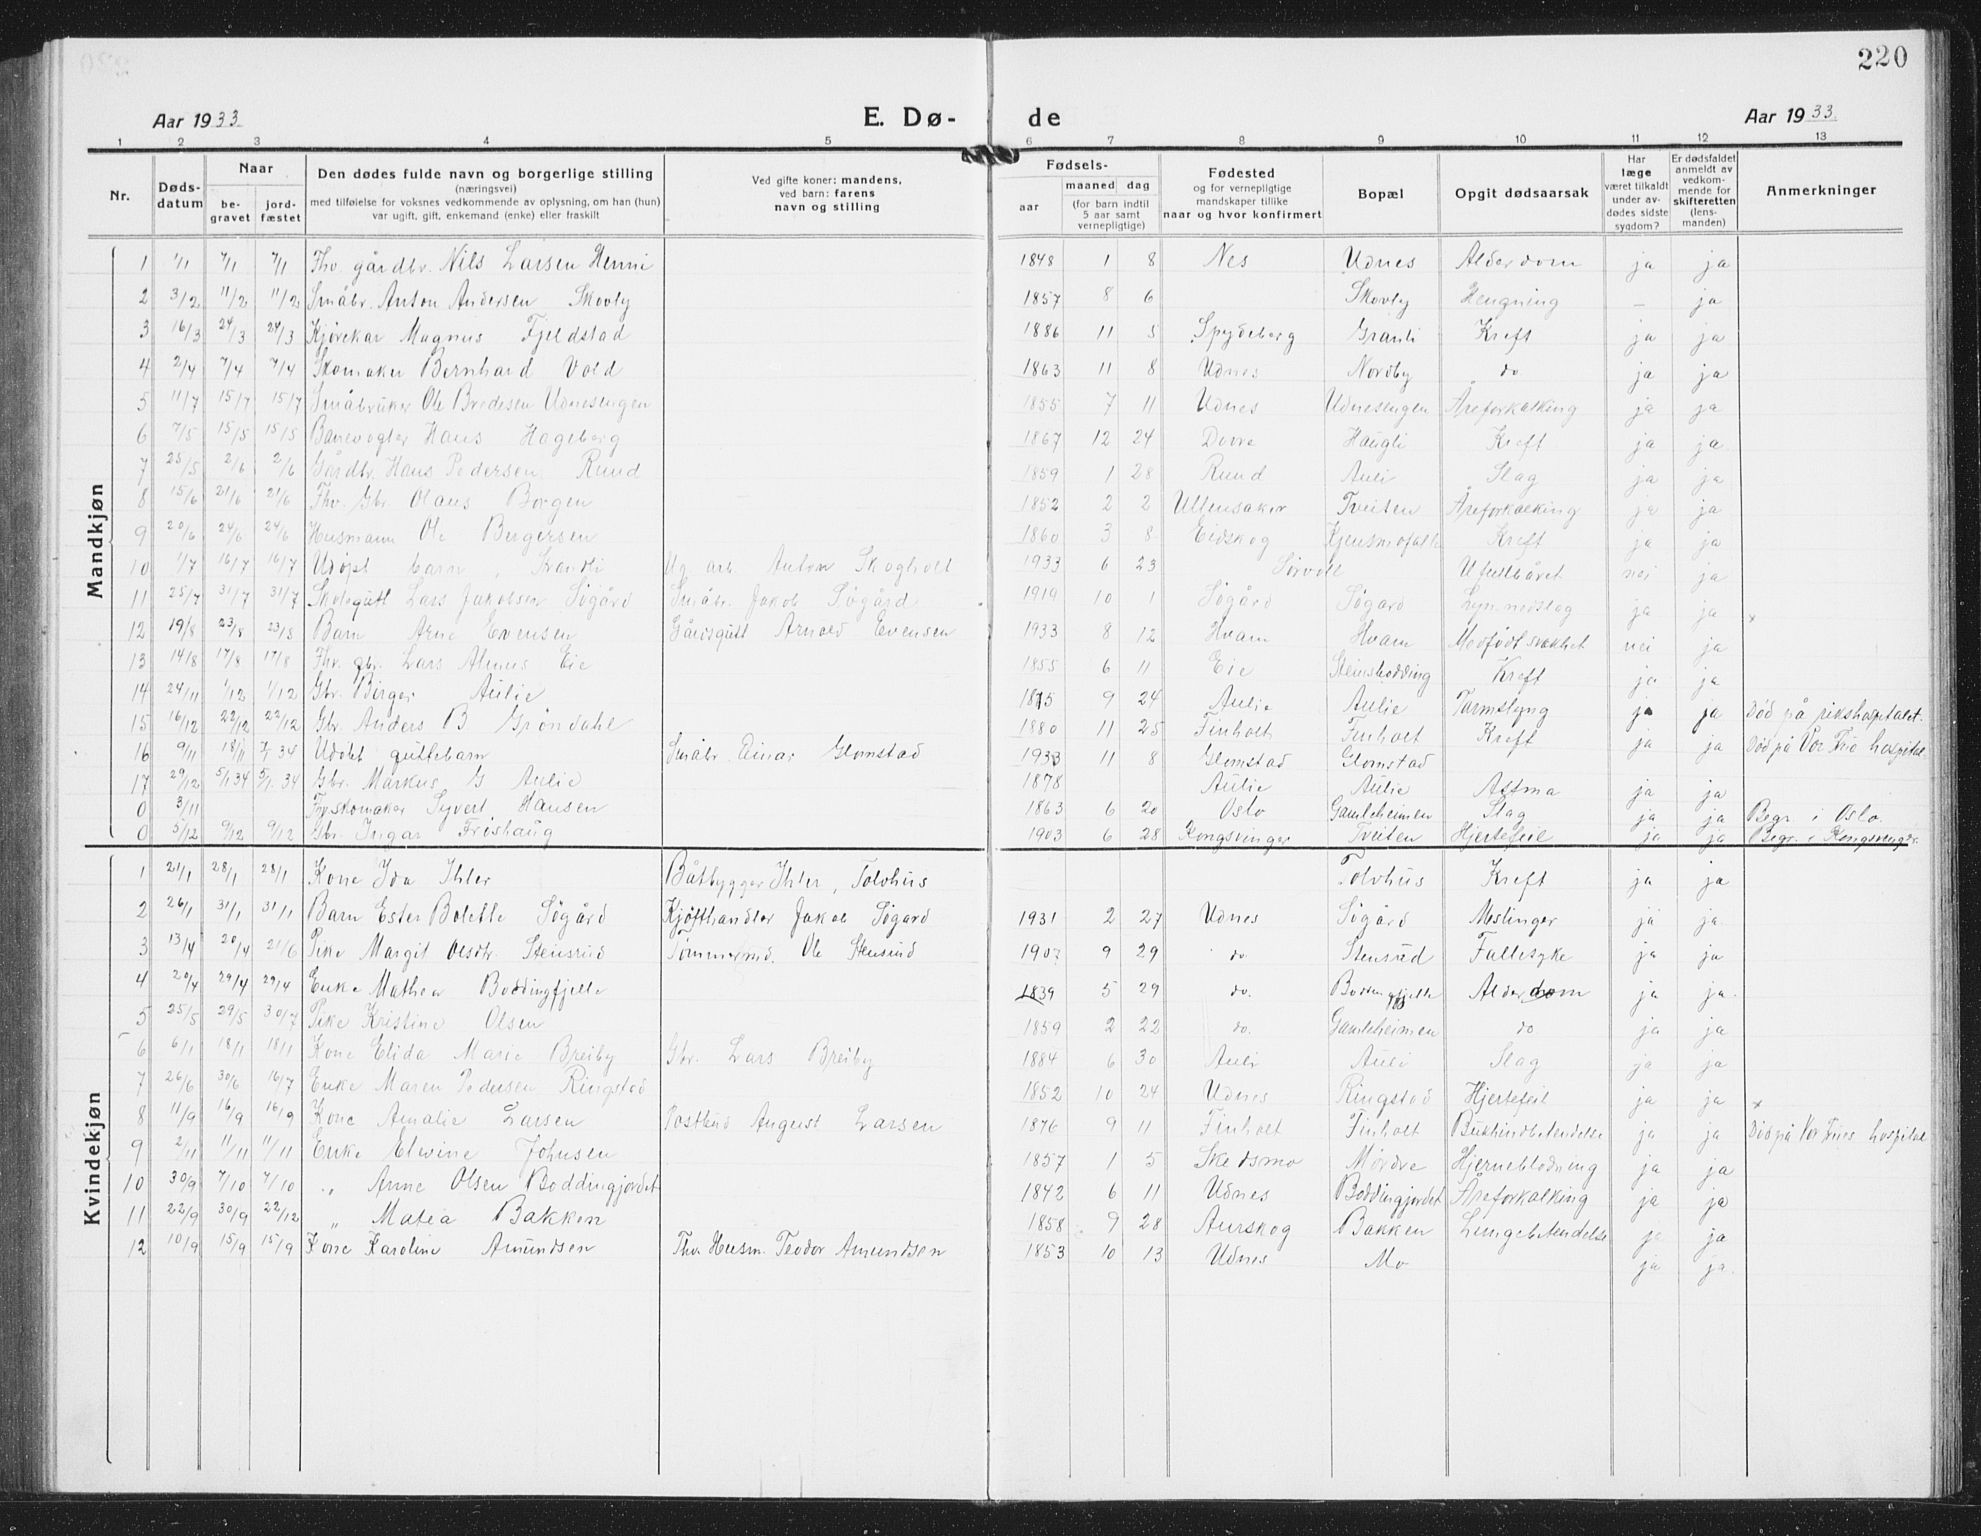 220
Aar 1933 E. Dø- de Aar 1933.
1 2 3 4 5 6 7 8 9 10 11 12 13
Nr. Døds-datum Naar be-gravet jord-fæstet Den dødes fulde navn og borgerlige stilling (næringsvei) med tilføielse for voksnes vedkommende av oplysning, om han (hun) var ugift, gift, enkemand (enke) eller fraskilt Ved gifte koner: mandens, ved barn: farens navn og stilling Fødsels- aar maaned dag (for barn indtil 5 aar samt vernepligtige) Fødested og for vernepligtige mandskaper tillike naar og hvor konfirmert Bopæl Opgit dødsaarsak Har læge været tilkaldt under av-dødes sidste sygdom? Er dødsfaldet anmeldt av vedkom-mende for skifteretten (lens-manden) Anmerkninger
Mandkjøn
1 1/1 7/1 7/1 Fhv. gårdbr. Nils Larsen Henni 1848 1 8 Nes Udnes Alderdom ja ja
2 3/2 11/2 11/2 Småbr. Anton Andersen Skovly 1857 8 6 Skovly Hengning – ja
3 16/3 24/3 24/3 Kjørekar Magnus Fjeldstad 1886 11 5 Spydeberg Granli Kreft ja ja
4 2/4 7/4 7/4 Skomaker Bernhard Vold 1863 11 8 Udnes Nordby do ja ja
5 11/7 15/7 15/7 Småbruker Ole Bredesen Udnesengen 1855 7 11 Udnes Udnesengen Åreforkalking ja ja
6 7/5 15/5 15/5 Banevogter Haus Hageberg 1867 12 24 Dovre Haugli Kreft ja ja
7 25/5 2/6 2/6 Gårdbr. Hans Pedersen Rund 1859 1 28 Rund Auli Slag ja ja
8 15/6 21/6 21/6 Fhv. Gbr. Olaus Borgen 1852 2 2 Ullensaker Tveiten Åreforkalking ja ja
9 20/6 24/6 24/6 Husmann Ole Bergersen 1860 3 8 Eidskog Kreft ja ja
10 1/7 16/7 16/7 Udøpt barn, Strandli Ug. arb. Anton Skogholt 1933 6 23 Sörvoll Ufullbåret nei ja
11 25/7 31/7 31/7 Skolegutt Lars Jakobsen Søgård Småbr. Jakob Søgård 1919 10 1 Søgård Søgård Lynnedslag ja ja
12 19/8 23/8 23/8 Barn Arne Evensen Gårdsgutt Arnold Evensen 1933 8 12 Hvam Hvam Medfødt svakhet nei ja x
13 14/8 17/8 17/8 Fhv. gbr. Lars Eie 1855 6 11 Eie Kreft ja ja
14 24/11 1/12 1/12 Gbr. Birger Aulie 1875 9 24 Aulie Aulie Tarmslyng ja ja Død på rikshospitalet.
15 16/12 22/12 22/12 Gbr. Anders B Grøndahl 1880 11 25 Finholt Finholt Kreft ja ja Død på Vor Frue hospital
16 9/11 18/11 7/1 34 Udøbt guttebarn Småbr. Einar Glomstad 1933 11 8 Glomstad Glomstad
17 29/12 5/1 34 5/1 34 Gbr. Markus G Aulie 1878 Aulie Aulie Astma ja ja
0 3/11 Fhv skomaker Syvert Hansen 1863 6 20 Oslo Gamleheimen Slag ja ja Begr. i Oslo.
0 5/12 9/12 9/12 Gbr. Ingar Frishaug 1903 6 28 Kongsvinger Tveiten Hjertefeil ja ja Begr. i Kongsvinger.
Kvindekjøn
1 21/1 28/1 28/1 Kone Ida Ihler Båtbygger Ihler, Tolvhus Tolvhus Kreft ja ja
2 26/1 31/1 31/1 Barn Ester Bolette Søgård Kjøtthandler Jakob Søgard 1931 2 27 Udnes Søgård Meslinger ja ja
3 13/4 20/4 21/6 Pike Margit Olsdtr. Stensrud Ole Stensrud 1907 9 29 do Stensrud Fallesyke ja ja
4 20/4 29/4 29/4 Enke Mathea Boddingfjelle 1839 5 29 do. Boddingfjelle Alderdom ja ja
5 25/5 29/5 30/7 Pike Kristine Olsen 1859 2 22 do. Gamleheimen do ja ja
6 6/1 18/1 18/1 Kone Elida Marie Breiby Gbr. Lars Breiby 1884 6 30 Auli Auli Slag ja ja
7 26/6 30/6 16/7 Enke Maren Pedersen Ringstad 1852 10 24 Udnes Ringstad Hjertefeil ja ja
8 11/9 16/9 16/9 Kone Amalie Larsen Postbud August Larsen 1876 9 11 Finholt Finholt Bukhindbetendelse ja ja x Død på Vor Frues hospital
9 2/11 11/11 11/11 Enke Elvine Johnsen 1857 1 5 Skedsmo Mørdre Hjerneblødning ja ja
10 30/9 7/10 7/10 " Anne Olsen Boddingjordet 1842 6 11 Udnes Boddingjordet Åreforkalking ja ja
11 22/9 30/9 22/12 " Matea Bakken 1858 9 28 Aurskog Bakken Lungebetendelse ja ja
12 10/9 15/9 15/9 Kone Karoline Amundsen Fhv. Husm. Teodor Amundsen 1853 10 13 Udnes Mo ja ja